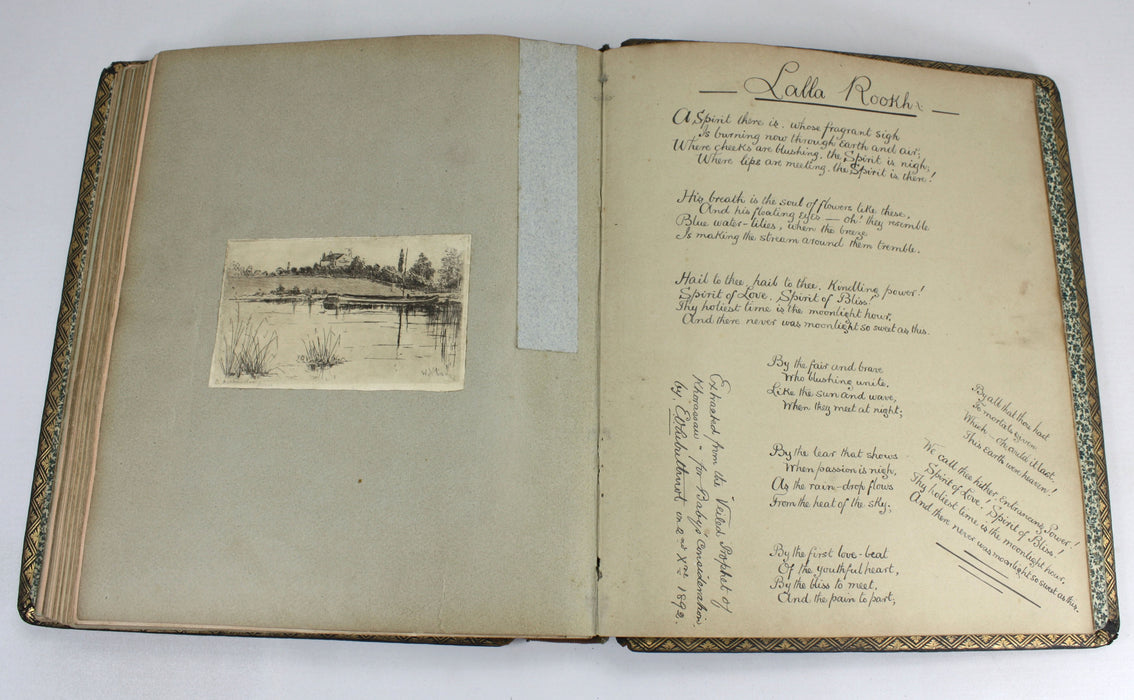 Lalla Rookh
A Spirit there is. whose fragrant sigh
Is burning now through Earth and air;
Where cheeks are blushing. the Spirit is nigh,
Where lips are meeting. the Spirit is there!
His breath is the soul of flowers like these,
And his floating eyes — oh! they resemble
Blue water-lilies, when the breeze
Is making the stream around them tremble.
Hail to thee, hail to thee. Kindling power!
Spirit of Love. Spirit of Bliss!
Thy holiest time is the moonlight hour,
And there never was moonlight so sweet as this.
By the fair and brave
Who blushing unite,
Like the sun and wave,
When they meet at night;
By the tear that shows
When passion is nigh,
As the rain-drop flows
From the heat of the sky;
By the first love-beat
Of the youthful heart,
By the bliss to meet,
And the pain to part;
By all that thou hast
To mortals given
Which — oh could it last,
This earth were heaven!
We call thee hither, Entrancing Power!
Spirit of Love! Spirit of Bliss!
Thy holiest time is the moonlight hour,
And there never was moonlight so sweet as this.
Extracted from the "Veiled Prophet of
Khorassan" for Baby's Consideration,
by on 2nd Xmr 1892.